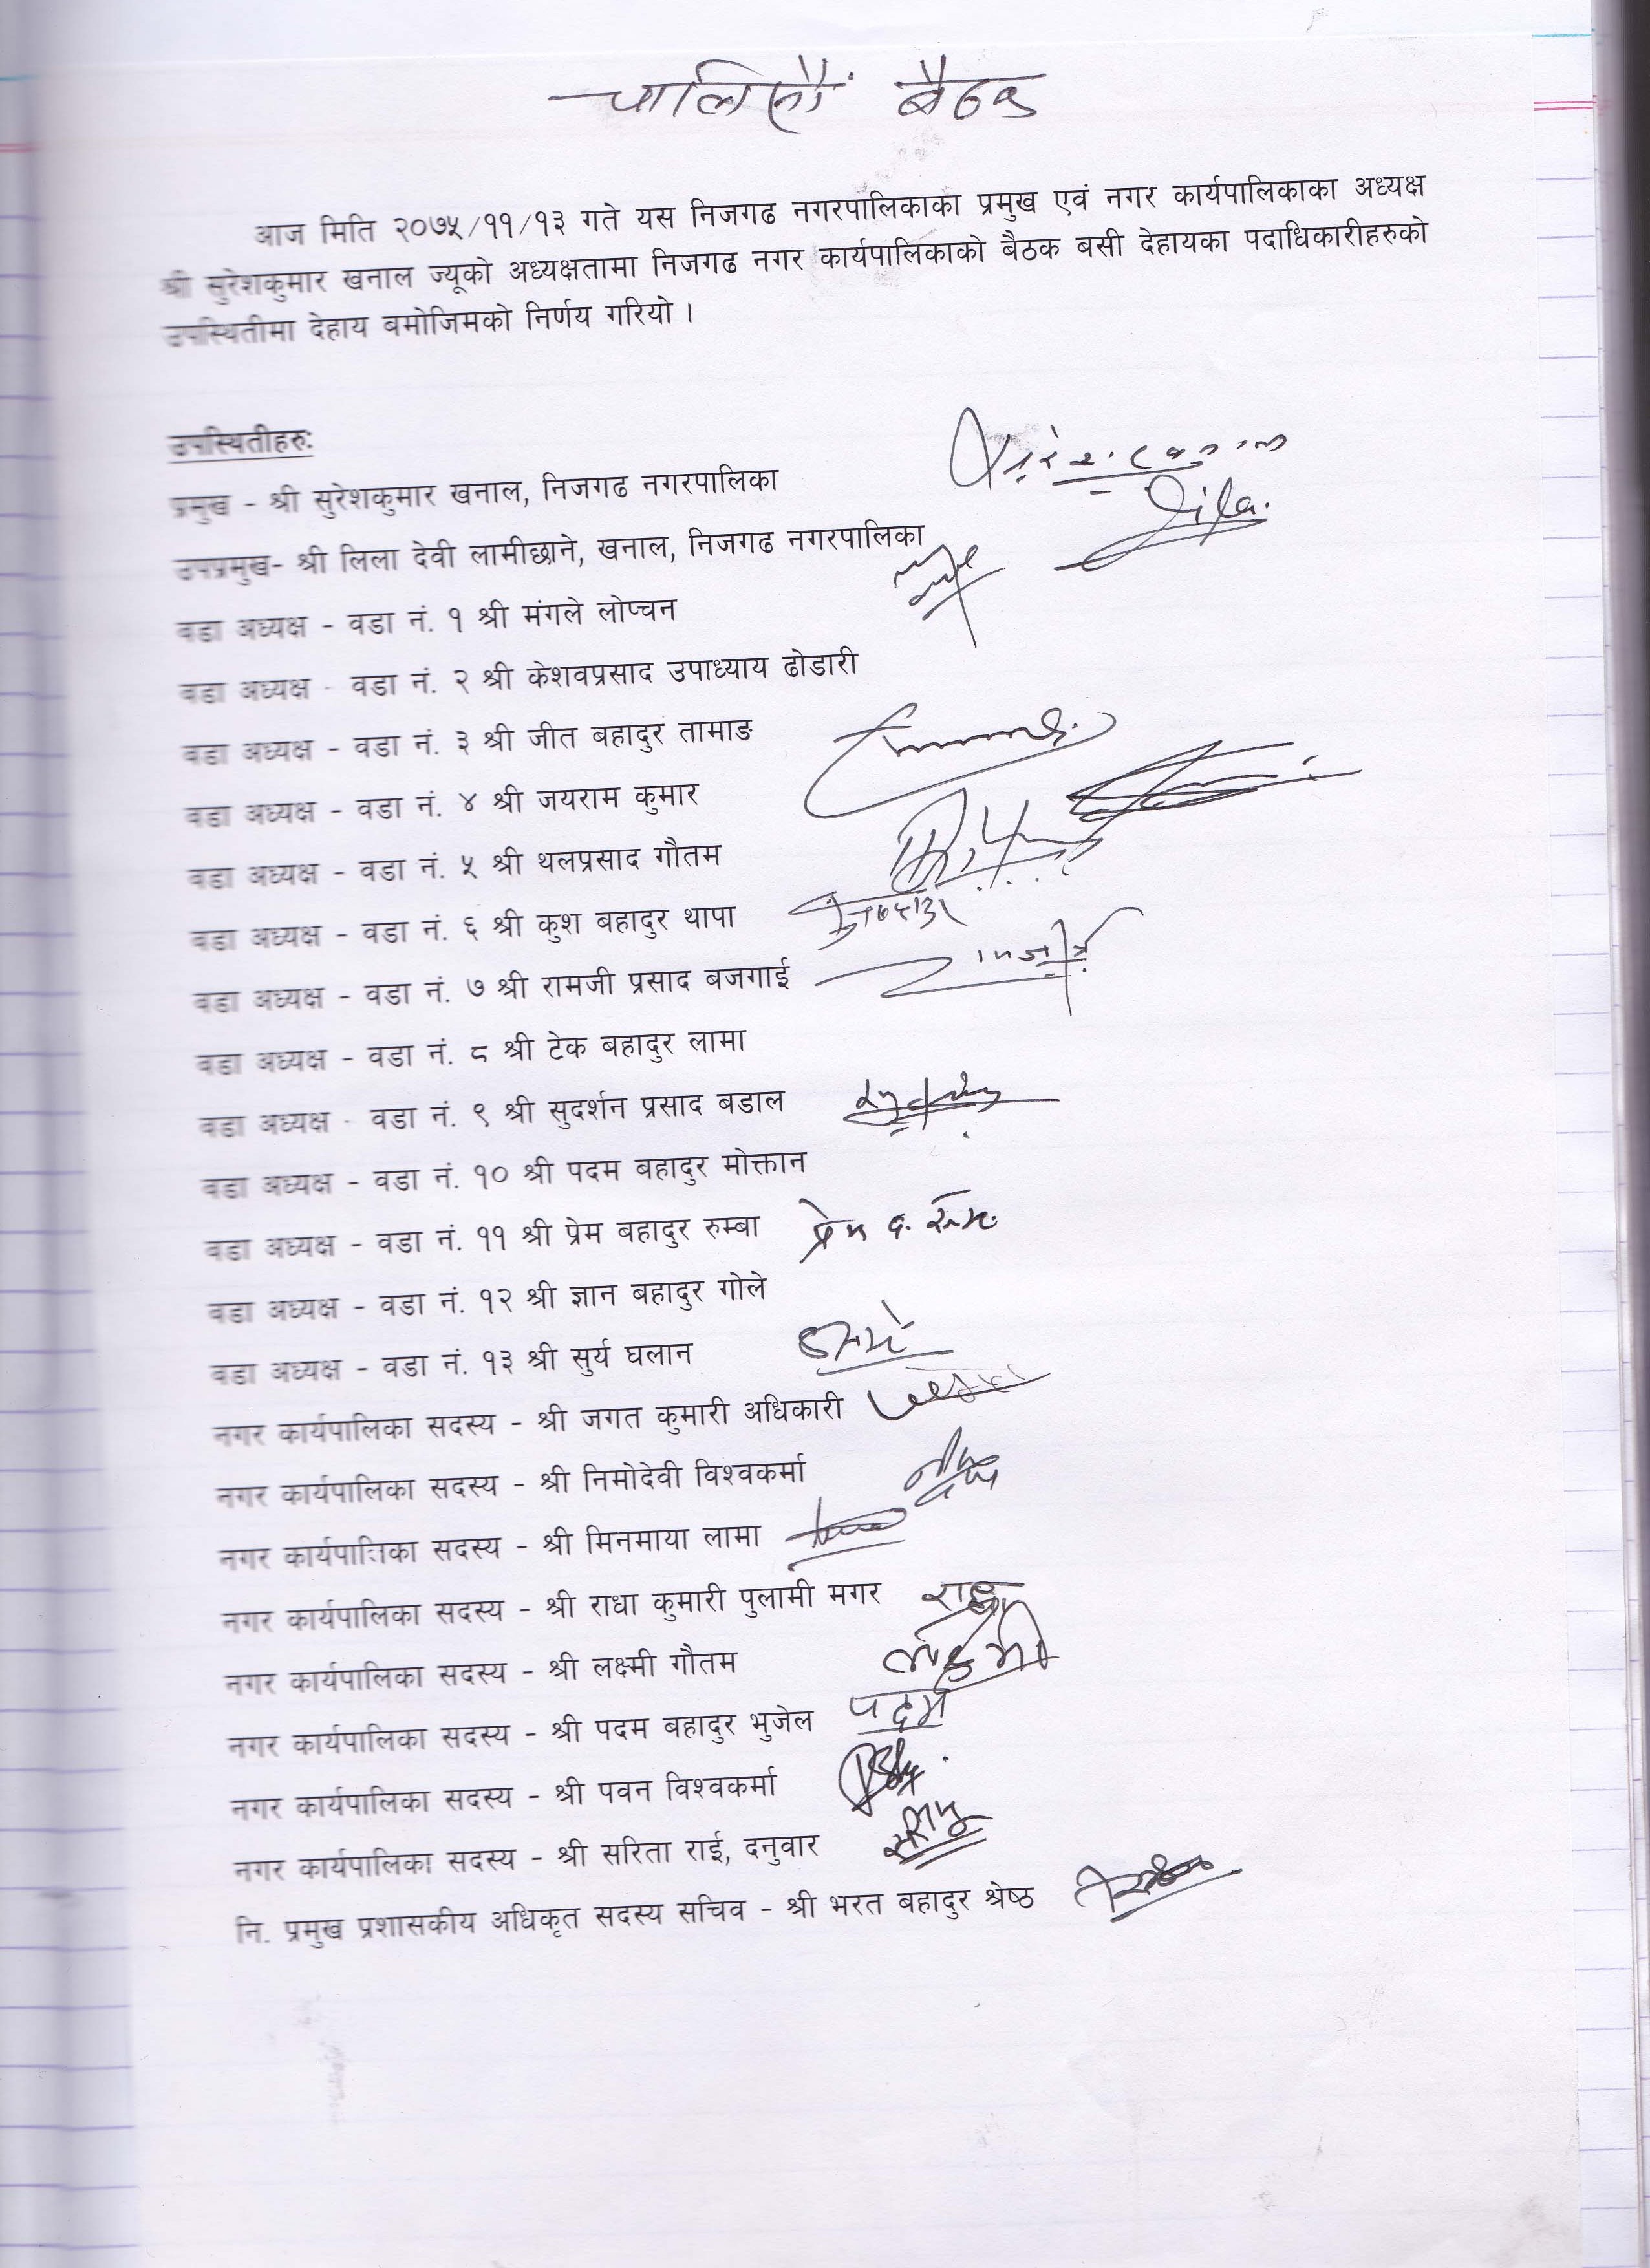 चालिसौं बैठक
आज मिति २०७५/११/१३ गते यस निजगढ नगरपालिकाका प्रमुख एवं नगर कार्यपालिकाका अध्यक्ष
श्री सुरेशकुमार खनाल ज्यूको अध्यक्षतामा निजगढ नगर कार्यपालिकाको बैठक बसी देहायका पदाधिकारीहरुको
उपस्थितीमा देहाय बमोजिमको निर्णय गरियो ।
उपस्थितीहरुः
प्रमुख - श्री सुरेशकुमार खनाल, निजगढ नगरपालिका
उपप्रमुख- श्री लिला देवी लामीछाने, खनाल, निजगढ नगरपालिका
वडा अध्यक्ष - वडा नं. १ श्री मंगले लोप्चन
वडा अध्यक्ष - वडा नं. २ श्री केशवप्रसाद उपाध्याय ढोडारी
वडा अध्यक्ष - वडा नं. ३ श्री जीत बहादुर तामाङ
वडा अध्यक्ष - वडा नं. ४ श्री जयराम कुमार
वडा अध्यक्ष - वडा नं. ५ श्री थलप्रसाद गौतम
वडा अध्यक्ष - वडा नं. ६ श्री कुश बहादुर थापा
वडा अध्यक्ष - वडा नं. ७ श्री रामजी प्रसाद बजगाई
वडा अध्यक्ष - वडा नं. ८ श्री टेक बहादुर लामा
वडा अध्यक्ष - वडा नं. ९ श्री सुदर्शन प्रसाद बडाल
वडा अध्यक्ष - वडा नं. १० श्री पदम बहादुर मोक्तान
वडा अध्यक्ष - वडा नं. ११ श्री प्रेम बहादुर रुम्बा प्रेम ब.
वडा अध्यक्ष - वडा नं. १२ श्री ज्ञान बहादुर गोले
वडा अध्यक्ष - वडा नं. १३ श्री सुर्य घलान
नगर कार्यपालिका सदस्य - श्री जगत कुमारी अधिकारी
नगर कार्यपालिका सदस्य - श्री निमोदेवी विश्वकर्मा
नगर कार्यपालिका सदस्य - श्री मिनमाया लामा
नगर कार्यपालिका सदस्य - श्री राधा कुमारी पुलामी मगर राधा
नगर कार्यपालिका सदस्य - श्री लक्ष्मी गौतम लक्ष्मी
नगर कार्यपालिका सदस्य - श्री पदम बहादुर भुजेल पदम
नगर कार्यपालिका सदस्य - श्री पवन विश्वकर्मा
नगर कार्यपालिका सदस्य - श्री सरिता राई, दनुवार
नि. प्रमुख प्रशासकीय अधिकृत सदस्य सचिव - श्री भरत बहादुर श्रेष्ठ